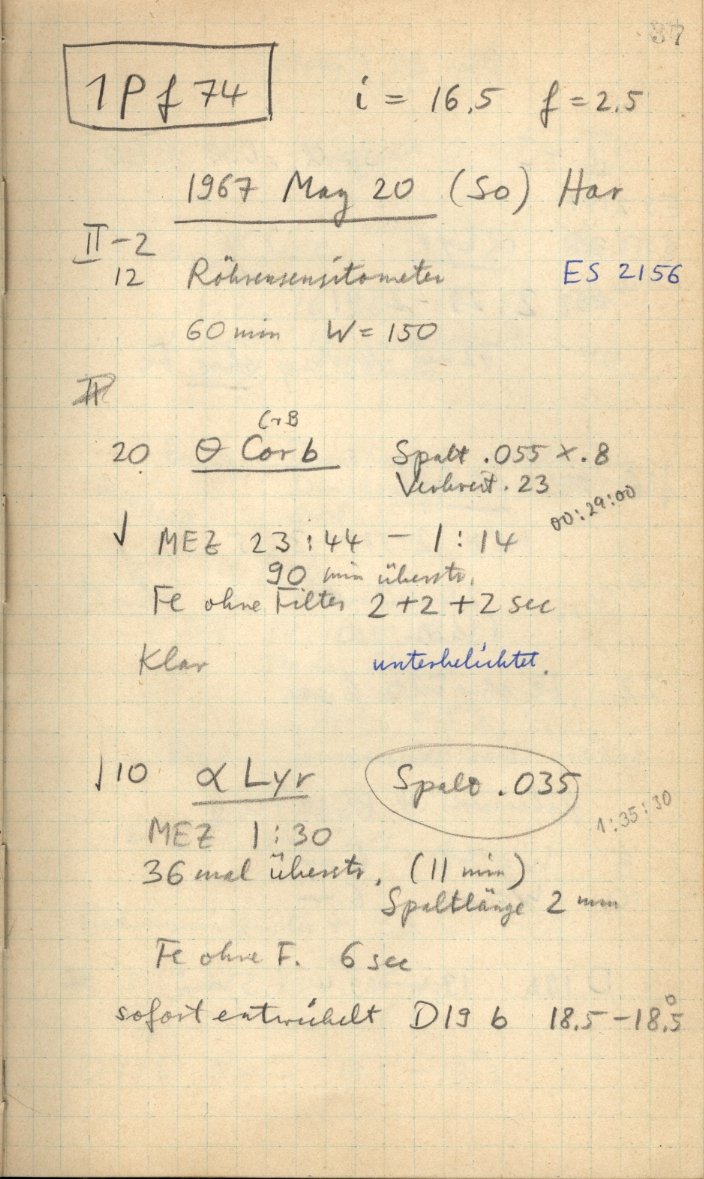 37
1Pf74 i = 16.5 f = 2.5
1967 May 20 (So) Har
II-2
12 Röhrensensitometer ES 2156
60 min W = 150
II
CrB
20 θ Corb Spalt .055 × .8
Verbreit. .23
00:29:00
√ MEZ 23:44 - 1:14
90 min überstr.
Fe ohne Filter 2+2+2 sec
Klar unterbelichtet.
√ 10 α Lyr Spalt .035
1:35:30
MEZ 1:30
36 mal überstr. (11 min)
Spaltlänge 2 mm
Fe ohne F. 6 sec
sofort entwickelt D19 b 18.5 - 18.5°